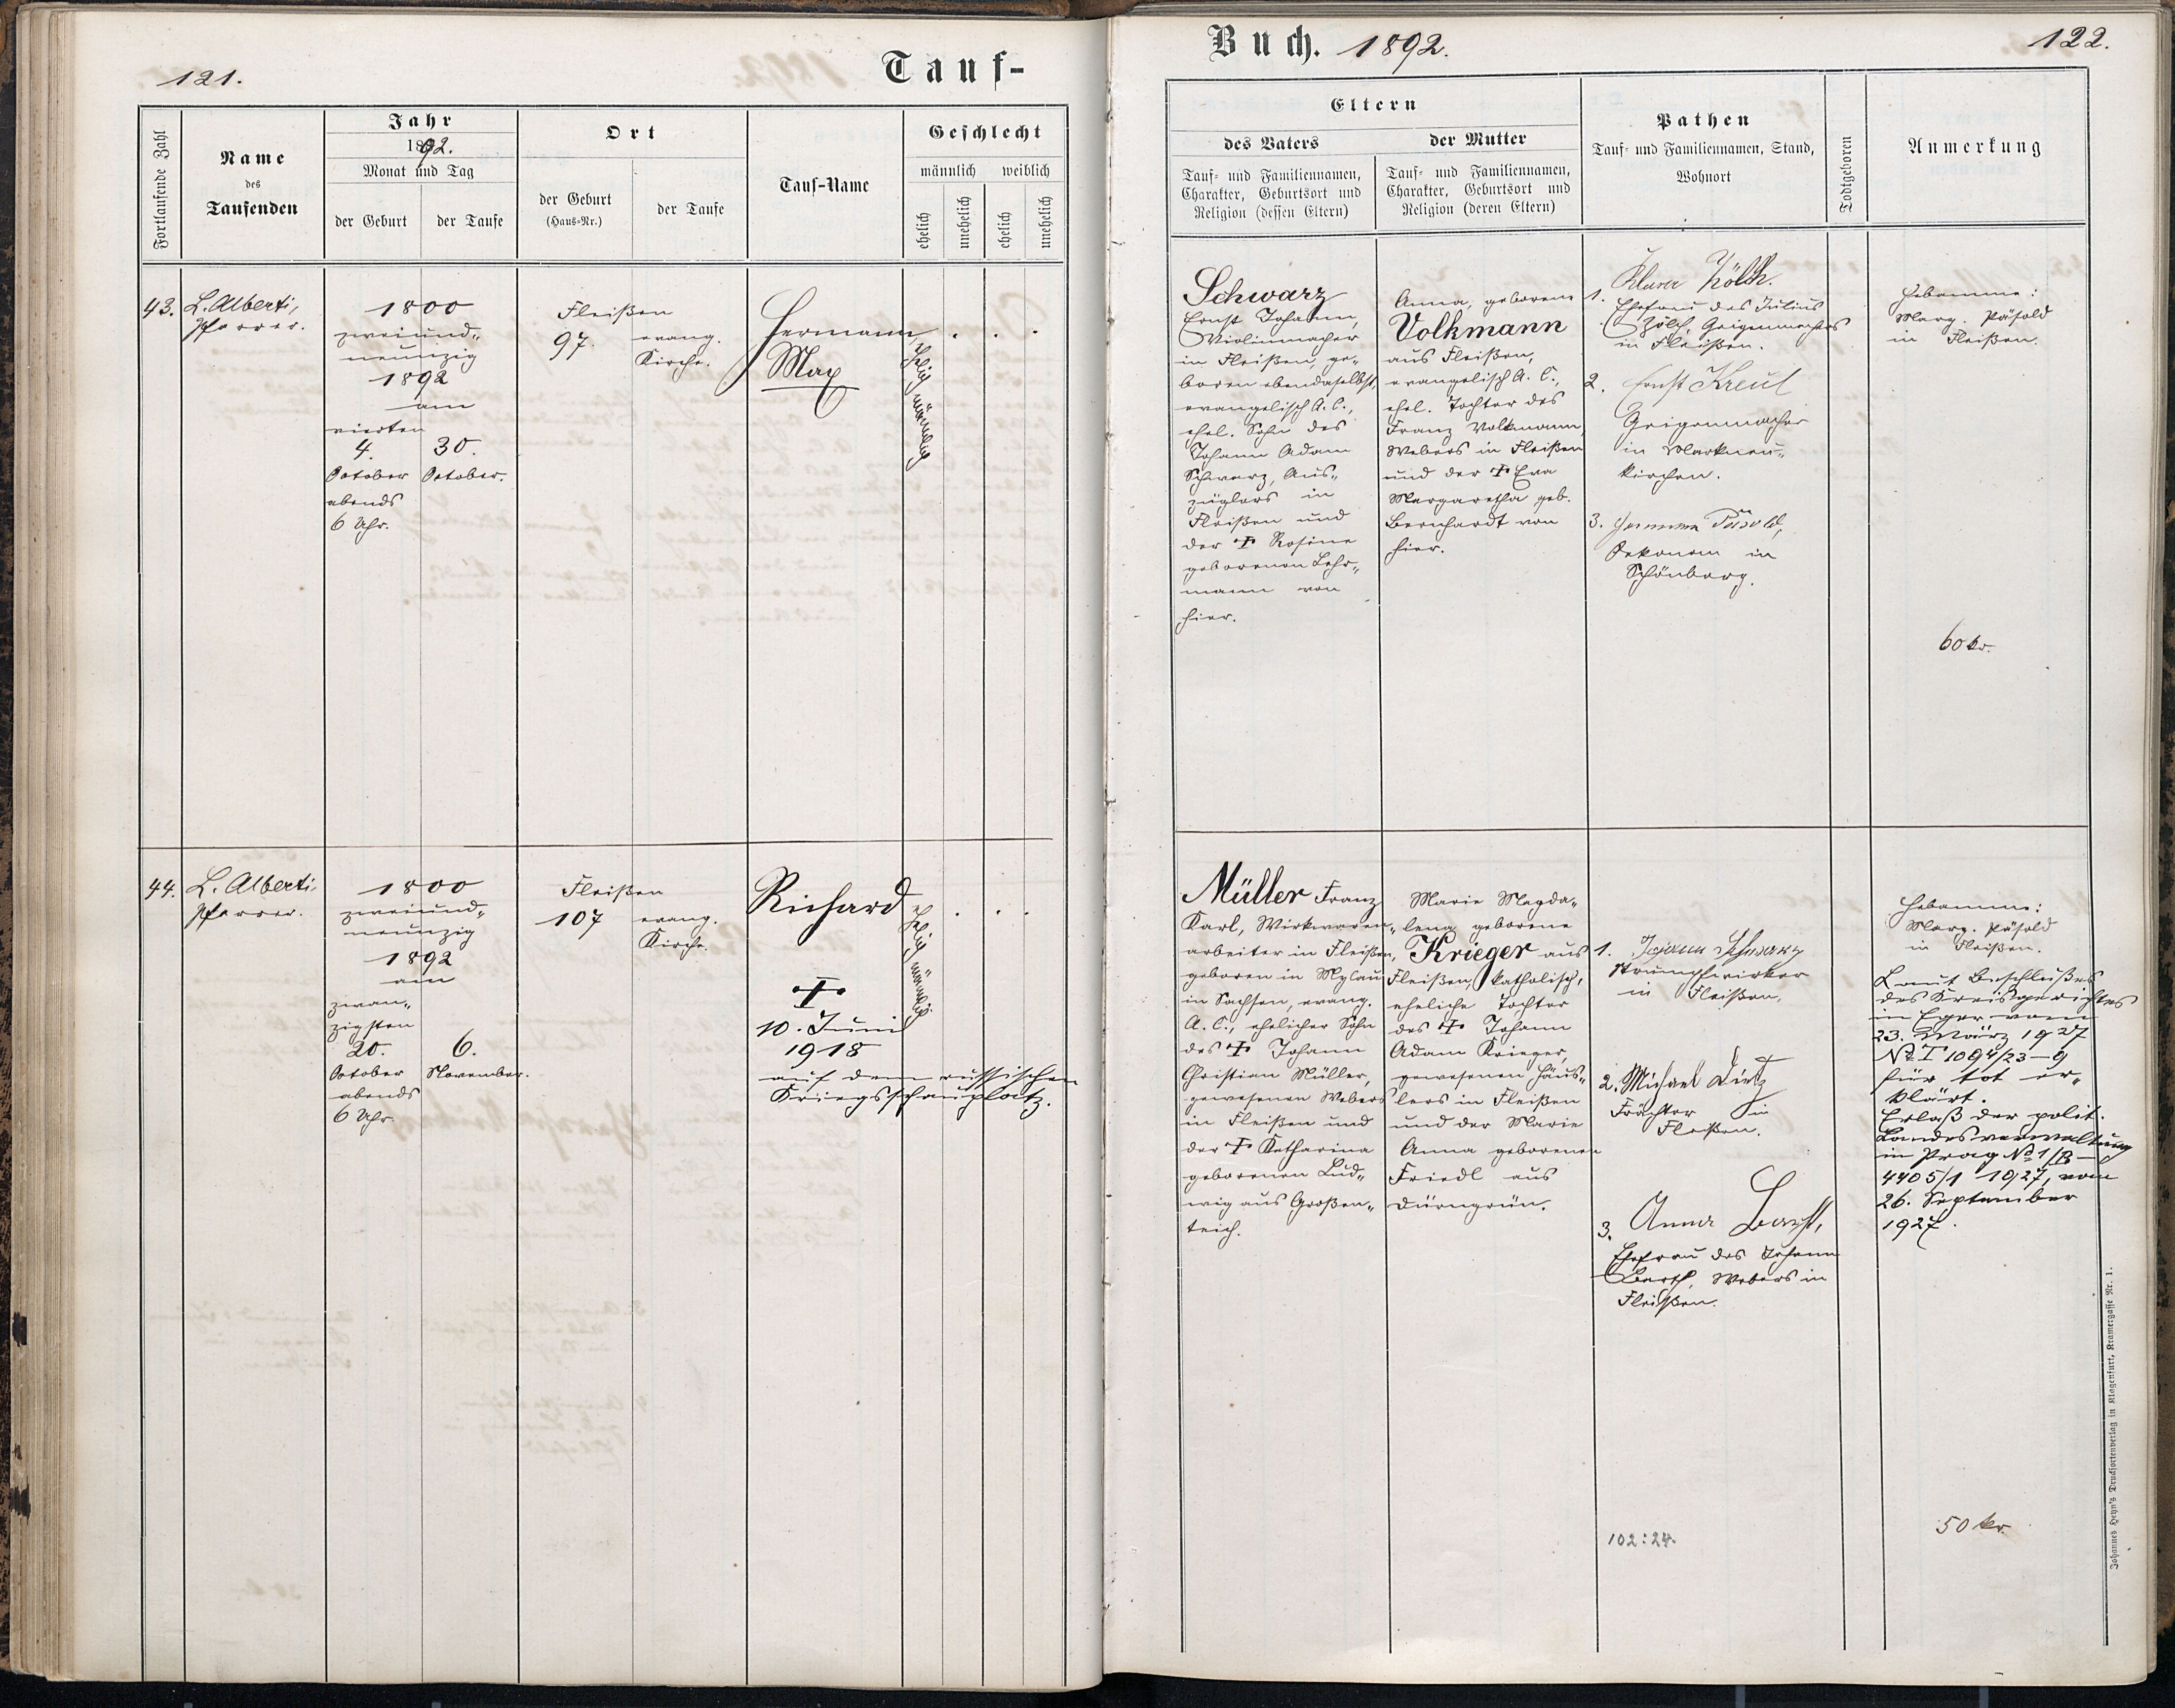 121.
Tauf-
Fortlaufende Zahl
Name
des
Taufenden
Jahr
1892.
Monat und Tag
der Geburt
der Taufe
Ort
der Geburt
(Haus-Nr.)
der Taufe
Tauf-Name
Geschlecht
männlich
weiblich
ehelich
unehelich
ehelich
unehelich
43.
L. Alberti,
Pfarrer.
1800
zweiund-
neunzig
1892
am
vierten
4.
30.
October
October.
abends
6 Uhr.
Fleißen
97.
evang.
Kirche.
Hermann
Max
Ehelich männlich
44.
L. Alberti,
Pfarrer.
1800
zweiund-
neunzig
1892
am
zwan-
zigsten
20.
6.
October
November.
abends
6 Uhr.
Fleißen
107
evang.
Kirche.
Richard
Ehelich männlich.
†
10. Juni
1918
auf dem russischen
Kriegsschauplatz.
Buch. 1892.
122.
Eltern
des Vaters
Tauf- und Familiennamen,
Charakter, Geburtsort und
Religion (dessen Eltern)
der Mutter
Tauf- und Familiennamen,
Charakter, Geburtsort und
Religion (deren Eltern)
Pathen
Tauf- und Familiennamen, Stand,
Wohnort
Todtgeboren
Anmerkung
Schwarz
Ernst Johann,
Violinmacher
in Fleißen, ge-
boren ebendaselbst,
evangelisch A. C.,
ehel. Sohn des
Johann Adam
Schwarz, Aus-
züglers in
Fleißen und
der † Rosine
geborenen Lehr-
mann von
hier.
Anna, geborene
Volkmann
aus Fleißen,
evangelisch A. C.,
ehel. Tochter des
Franz Volkmann,
Webers in Fleißen
und der † Eva
Margaretha geb.
Bernhardt von
hier.
1.
Ehefrau des Julius
Zölch, Geigenmachers
in Fleißen.
2. Ernst Kreul
Geigenmacher
in Markneu-
kirchen.
3. Hermann Päsold,
Oekonom in
Schönberg.
Hebamme:
Marg. Päsold
in Fleißen.
60 kr.
Müller Franz
Karl, Wirkwaren-
arbeiter in Fleißen,
geboren in Mylau
in Sachsen, evang.
A. C., ehelicher Sohn
des † Johann
Christian Müller,
gewesenen Webers
in Fleißen und
der † Katharina
geborenen Lud-
wig aus Großen-
teich.
Marie Magda-
lena geborene
Krieger aus
Fleißen, katholisch,
eheliche Tochter
des † Johann
Adam Krieger,
gewesenen Häus-
lers in Fleißen
und der Marie
Anna geborenen
Friedl aus
Dürngrün.
1. Johann Schwarz
Strumpfwirker
in Fleißen.
2. Michael Dietz
Frächter in
Fleißen.
3. Anna Barth,
Ehefrau des Johann
Barth, Webers in
Fleißen.
102:24.
Hebamme:
Marg. Päsold
in Fleißen.
Laut Beschlußes
des Kreisgerichtes
in Eger vom
23. März 1927
No T 1094/23-9
für tot er-
klärt.
Erlaß der polit.
Landesverwaltung
in Prag No 1/B-
4405/1 1927, vom
26. September
1927.
50 kr.
Johannes Heyn's Drucksortenverlag in Klagenfurt, Kramergasse Nr. 1.